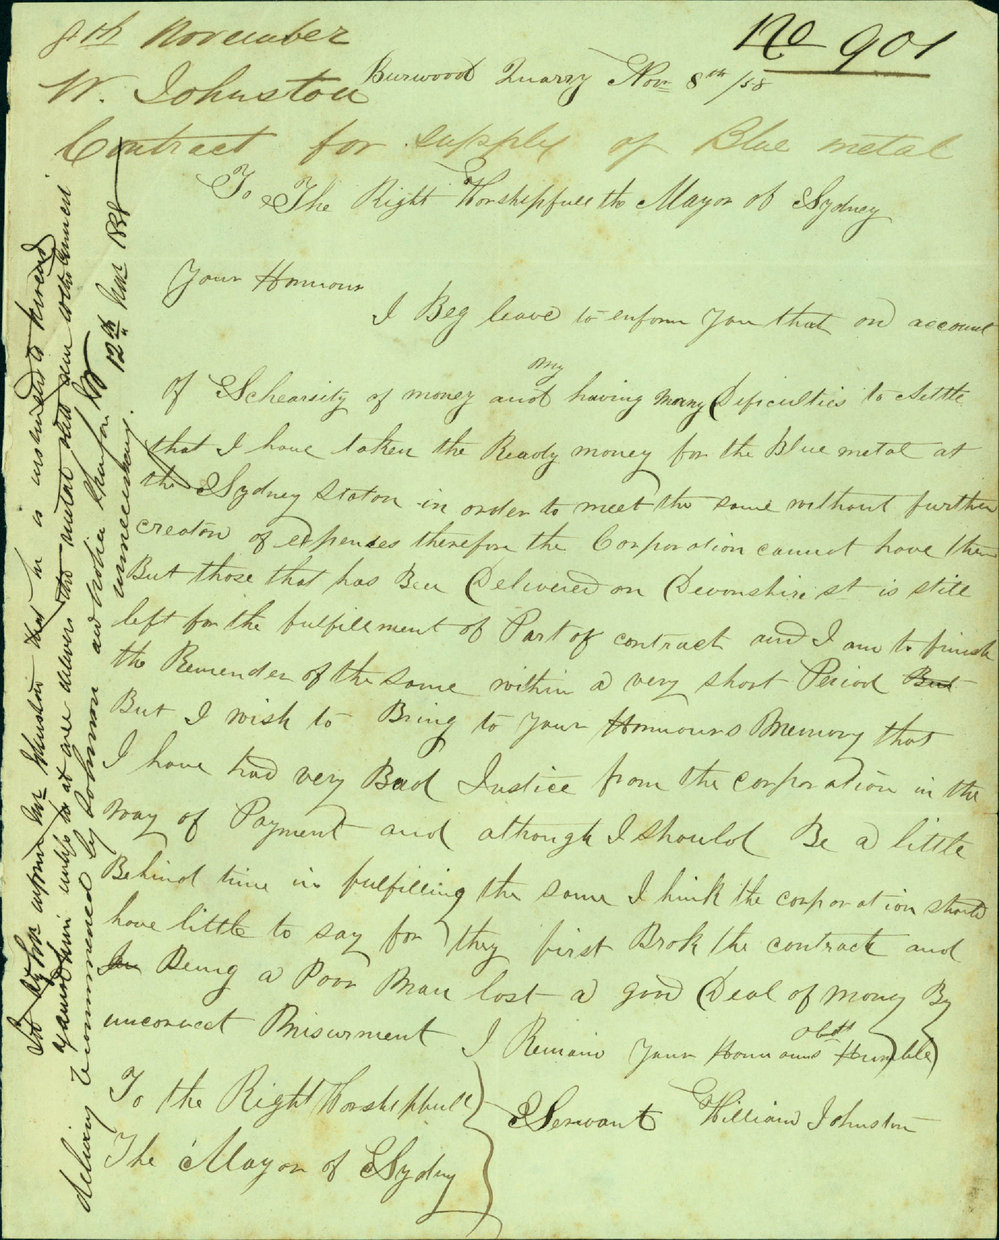 8th November
No 901
W. Johnston
Burwood Quarry Nov 8th /58
Contract for supply of Blue metal
To The Right Worshipfull the Mayor of Sydney
Your Honnour
I Beg leave to enform You that on account
of Schearsity of money and my having many Deficulties to settle
that I have taken the Ready money for the Blue metal at
the Sydney Staton in order to meet the same without further
creaton of expenses therefore the Corporation cannot have them
But those that has Been Delivered on Devonshire st is still
left for the fulfillment of Part of contract and I am to finish
the Remender of the same within a very short Period But
But I wish to Bring to Your Honnours Memory that
I have had very Bad Justice from the corporation in the
way of Payment and although I should Be a little
Behind time in fulfilling the same I hink the corporation should
have little to say for they first Brok the contract and
In Being a Poor Man lost a good Deal of money By
uncorrect Misurment I Remain Your Honnours obdt Humble
Servant William Johnston
To the Right Worshipfull
The Mayor of Sydny
inform Mr Johnston that he is
him until the metal
delivery recommended by and notice
unnecessary. 12th Novr 1858